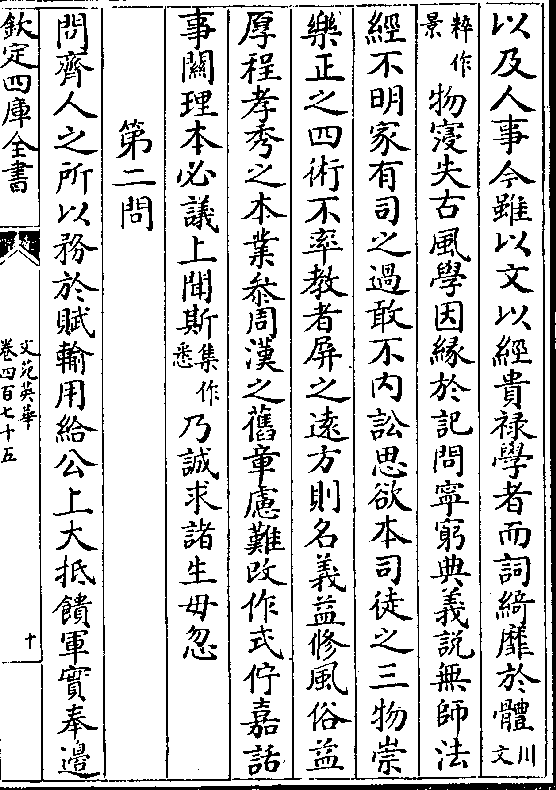 以及人事今雖以文以經貴禄學者而詞綺靡於體川文
粹作景物寖失古風學因縁於記問寧窮典義説無師法
經不明家有司之過敢不内訟思欲本司徒之三物崇
樂正之四術不率教者屏之逺方則名義益修風俗益
厚程孝秀之本業叅周漢之舊章慮難改作式佇嘉話
事闗理本必議上聞斯集作悉乃誠求諸生毋忽
第二問
問齊人之所以務於賦輸用給公上大抵饋軍實奉邊
欽定四庫全書
文苑英華
卷四百七十五
十